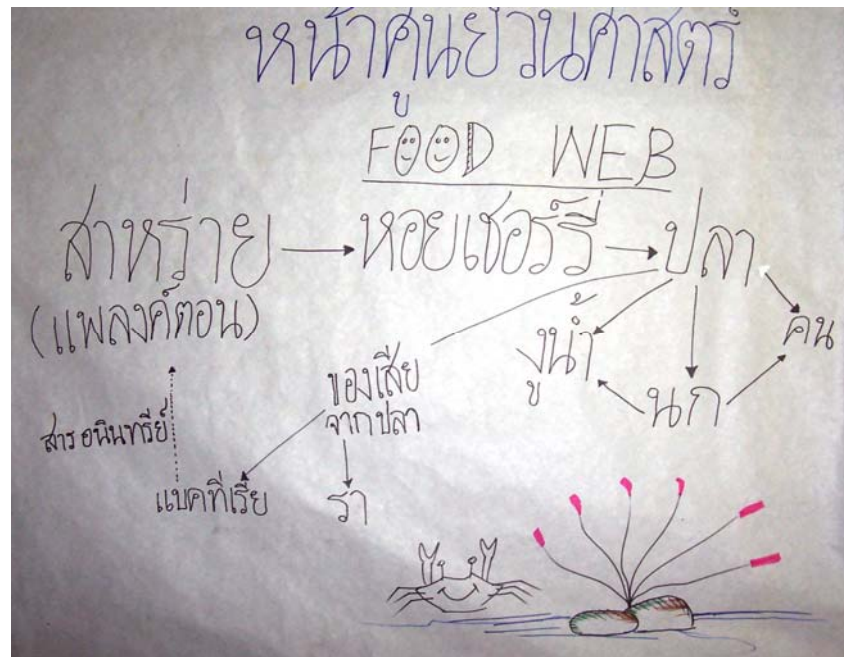 หน้าศูนย์วนศาสตร์
FOOD WEB
สาหร่าย
(แพลงค์ตอน)
หอยเชอร์รี่
ปลา
คน
งูน้ำ
นก
ของเสีย
จากปลา
สารอนินทรีย์
แบคทีเรีย
รา